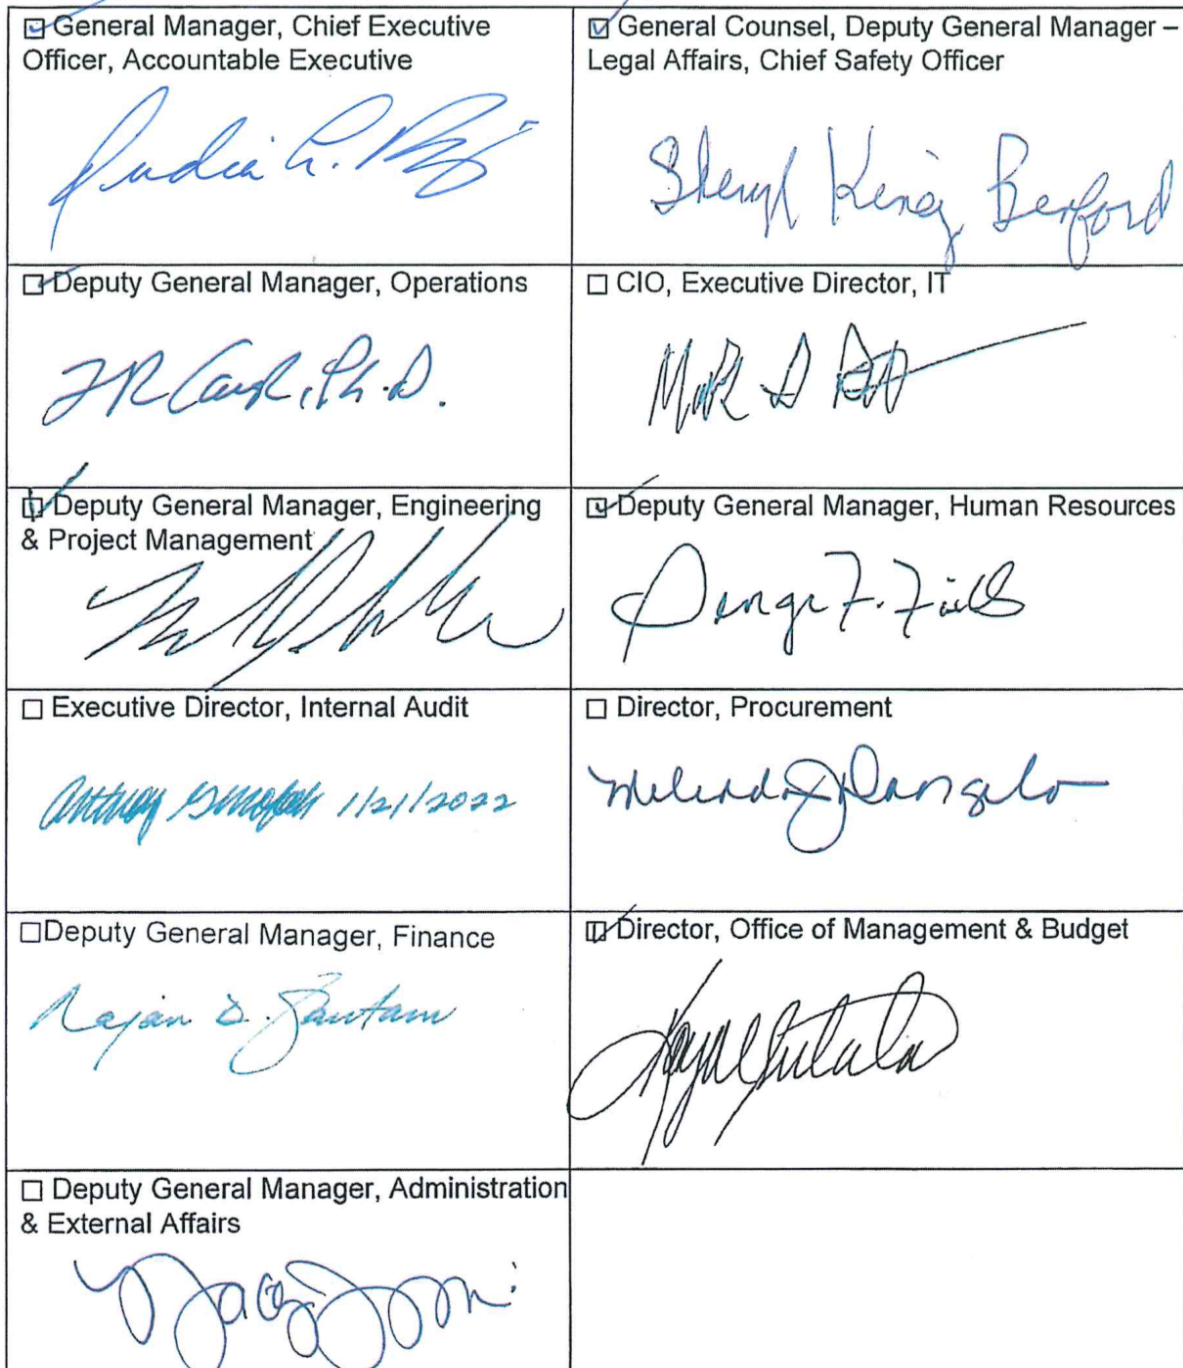 General Manager, Chief Executive
Officer, Accountable Executive
General Counsel, Deputy General Manager –
Legal Affairs, Chief Safety Officer
Sheryl King Benford
Deputy General Manager, Operations
Ph.D.
CIO, Executive Director, IT
Deputy General Manager, Engineering
& Project Management
Deputy General Manager, Human Resources
George F. Fields
Executive Director, Internal Audit
1/21/2022
Director, Procurement
Deputy General Manager, Finance
Rajan D. Gautam
Director, Office of Management & Budget
Deputy General Manager, Administration
& External Affairs